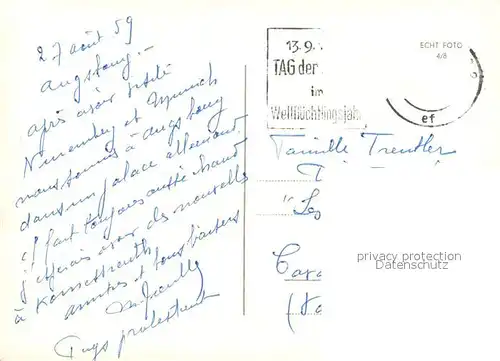 27 août 59
Augsbourg —
après avoir visité
Nuremberg et Munich
nous sommes à Augsbourg
dans un palace allemand
il fait toujours aussi chaud
j'espère avoir des nouvelles
à
amitiés et bons baisers
Pays protestant
13.9.
TAG der
im
Weltflüchtlingsjahr
ECHT FOTO
4/8
ef
Famille Trentler
"Les
Cara
privacy protection
Datenschutz